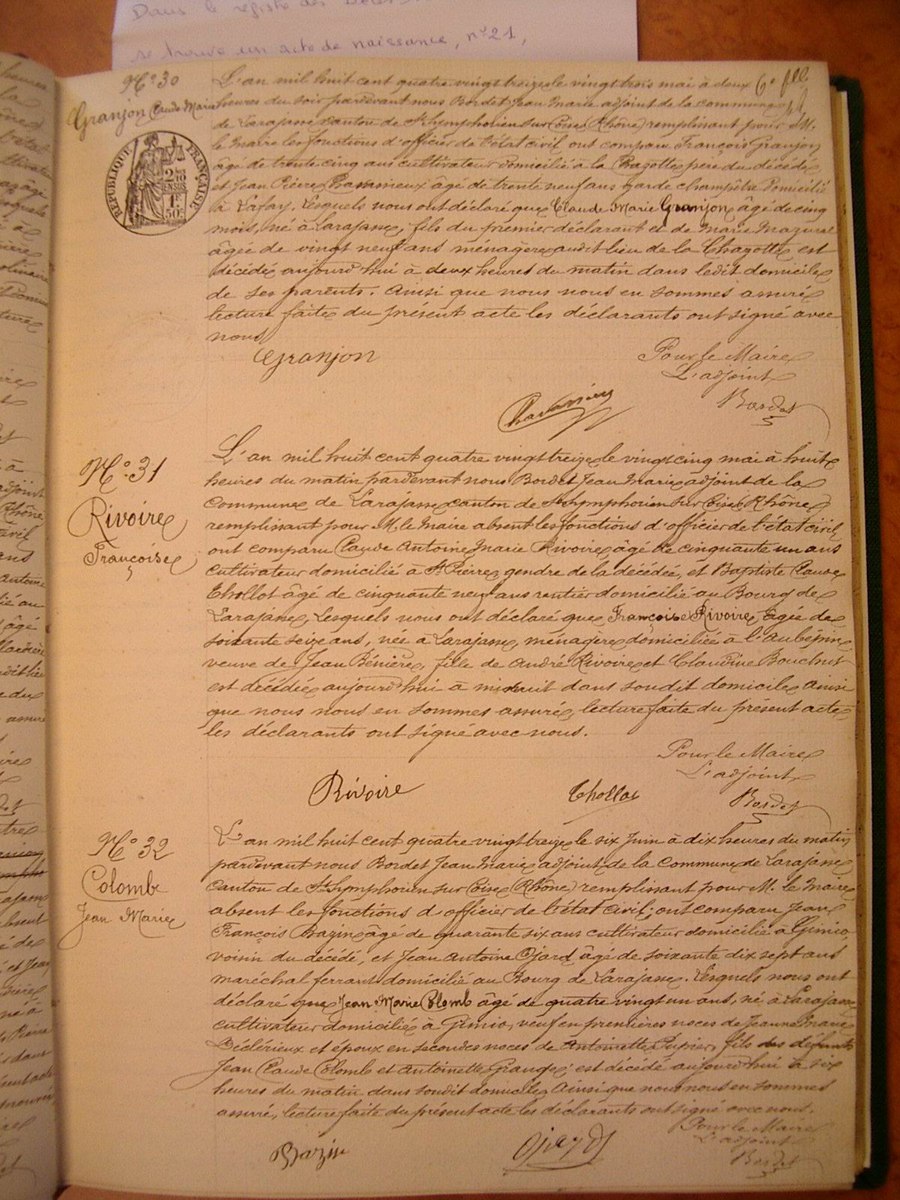 Dans le registre des Décès
se trouve un acte de naissance, n° 21,
N° 30
Granjon Claude Marie
RÉPUBLIQUE FRANÇAISE
2/10 EN SUS
1F 50C
L'an mil huit cent quatre vingt treize le vingt trois mai à deux 6e fll
heures du soir pardevant nous Bordet Jean Marie adjoint de la commune
de Larajasse canton de St Symphorien sur Coise (Rhône) remplissant pour M.
le Maire les fonctions d'officier de l'état civil ont comparu François Granjon
âgé de trente cinq ans cultivateur domicilié à la père du décédé
et Jean Pierre âgé de trente neuf ans garde champêtre domicilié
à Lafay. Lesquels nous ont déclaré que Claude Marie Granjon âgé de cinq
mois, né à Larajasse, fils du premier déclarant et de Marie
âgée de vingt neuf ans ménagère audit lieu de la est
décédé aujourd'hui à deux heures du matin dans ledit domicile
de ses parents. Ainsi que nous nous en sommes assuré
lecture faite du présent acte les déclarants ont signé avec
nous
Granjon
Pour le Maire
L'adjoint
Bordet
N° 31
Rivoire
Françoise
L'an mil huit cent quatre vingt treize le vingt cinq mai à huit
heures du matin pardevant nous Bordet Jean Marie adjoint de la
commune de Larajasse canton de St Symphorien sur Coise (Rhône)
remplissant pour M. le Maire absent les fonctions d'officier de l'état civil
ont comparu Claude Antoine Marie Rivoire âgé de cinquante un ans
cultivateur domicilié à St Pierre, gendre de la décédée, et Baptiste Claude
Thollot âgé de cinquante neuf ans rentier domicilié au Bourg de
Larajasse, Lesquels nous ont déclaré que Françoise Rivoire, âgée de
soixante seize ans, née à Larajasse, ménagère domiciliée à l'Aubépin
veuve de Jean Bénière, fille de André Rivoire et Claudine Bouchut
est décédée aujourd'hui à minuit dans soudit domicile ainsi
que nous nous en sommes assuré, lecture faite du présent acte,
les déclarants ont signé avec nous.
Pour le Maire
L'adjoint
Rivoire Thollot Bordet
N° 32
Colomb
Jean Marie
L'an mil huit cent quatre vingt treize le six Juin à dix heures du matin
pardevant nous Bordet Jean Marie adjoint de la Commune de Larajasse
Canton de St Symphorien sur Coise (Rhône) remplissant pour M. le Maire
absent les fonctions d'officier de l'état civil; ont comparu Jean
François Bazin âgé de quarante six ans cultivateur domicilié à Gimio
voisin du décédé, et Jean Antoine Ojard âgé de soixante dix sept ans
maréchal ferrant domicilié au Bourg de Larajasse. Lesquels nous ont
déclaré que Jean Marie Colomb âgé de quatre vingt un ans, né à Larajasse
cultivateur domicilié à Gimio, veuf en premières noces de Jeanne Marie
et époux en secondes noces de Antoinette Pupier, fils des défunts
Jean Claude Colomb et Antoinette Grange, est décédé aujourd'hui à six
heures du matin dans soudit domicile. Ainsi que nous nous en sommes
assuré, lecture faite du présent acte les déclarants ont signé avec nous.
Pour le Maire
L'adjoint
Bazin Ojard Bordet